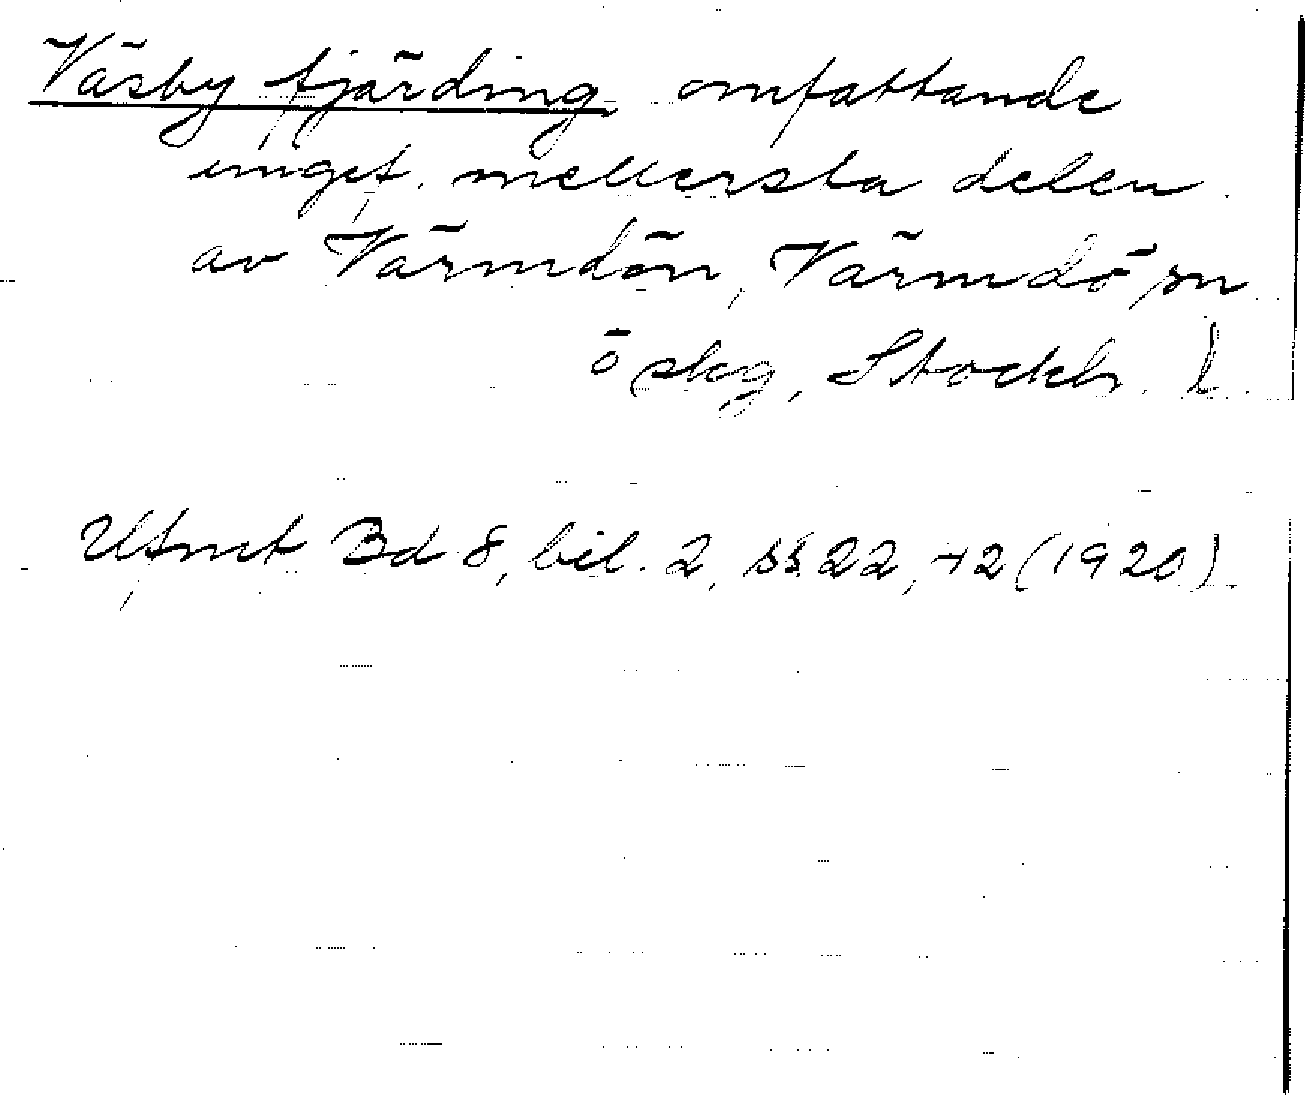 Väsby fjärding omfattande
unget. mellersta delen
av Värmdön, Värmdö sn
ö skg, Stockh. l.
Utmet Bd 8, bil. 2, ss 22, 42 (1920)